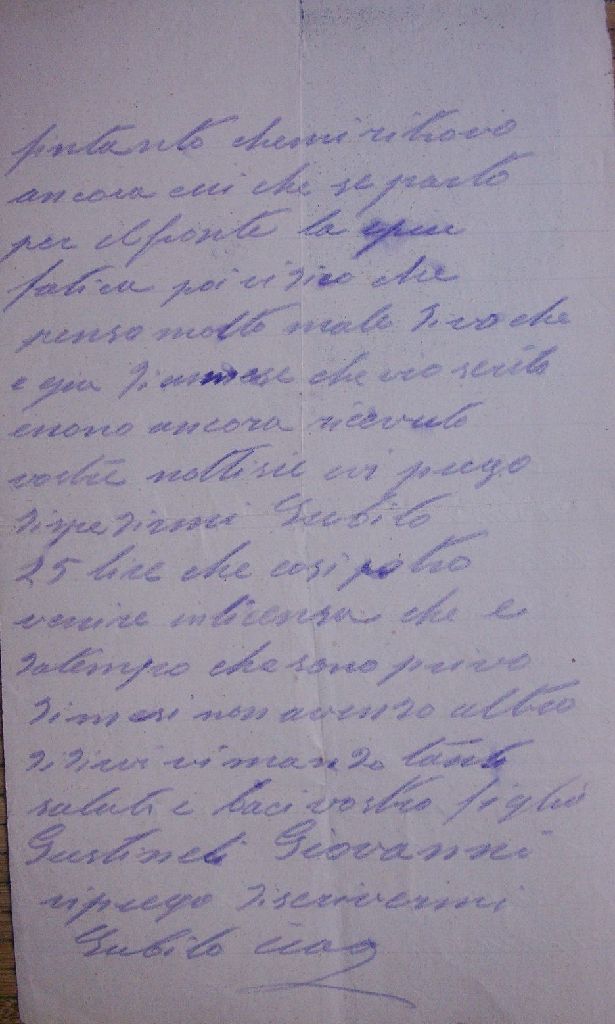 fintanto chemi ritrovo
ancora cui che se parto
per il fronte la
fatica poi vi dico che
penso molto male divo che
e gia che vio scrito
enono ancora ricevuto
vostre nottisie vi prego
dispedirmi Subito
25 lire che cosi potro
venire inlicensa che e
datempo che sono privo
dimesi non avendo altro
didirvi vi mando tanti
saluti e baci vostro figlio
Gustineli Giovanni
viprego discrivermi
Subito Ciao